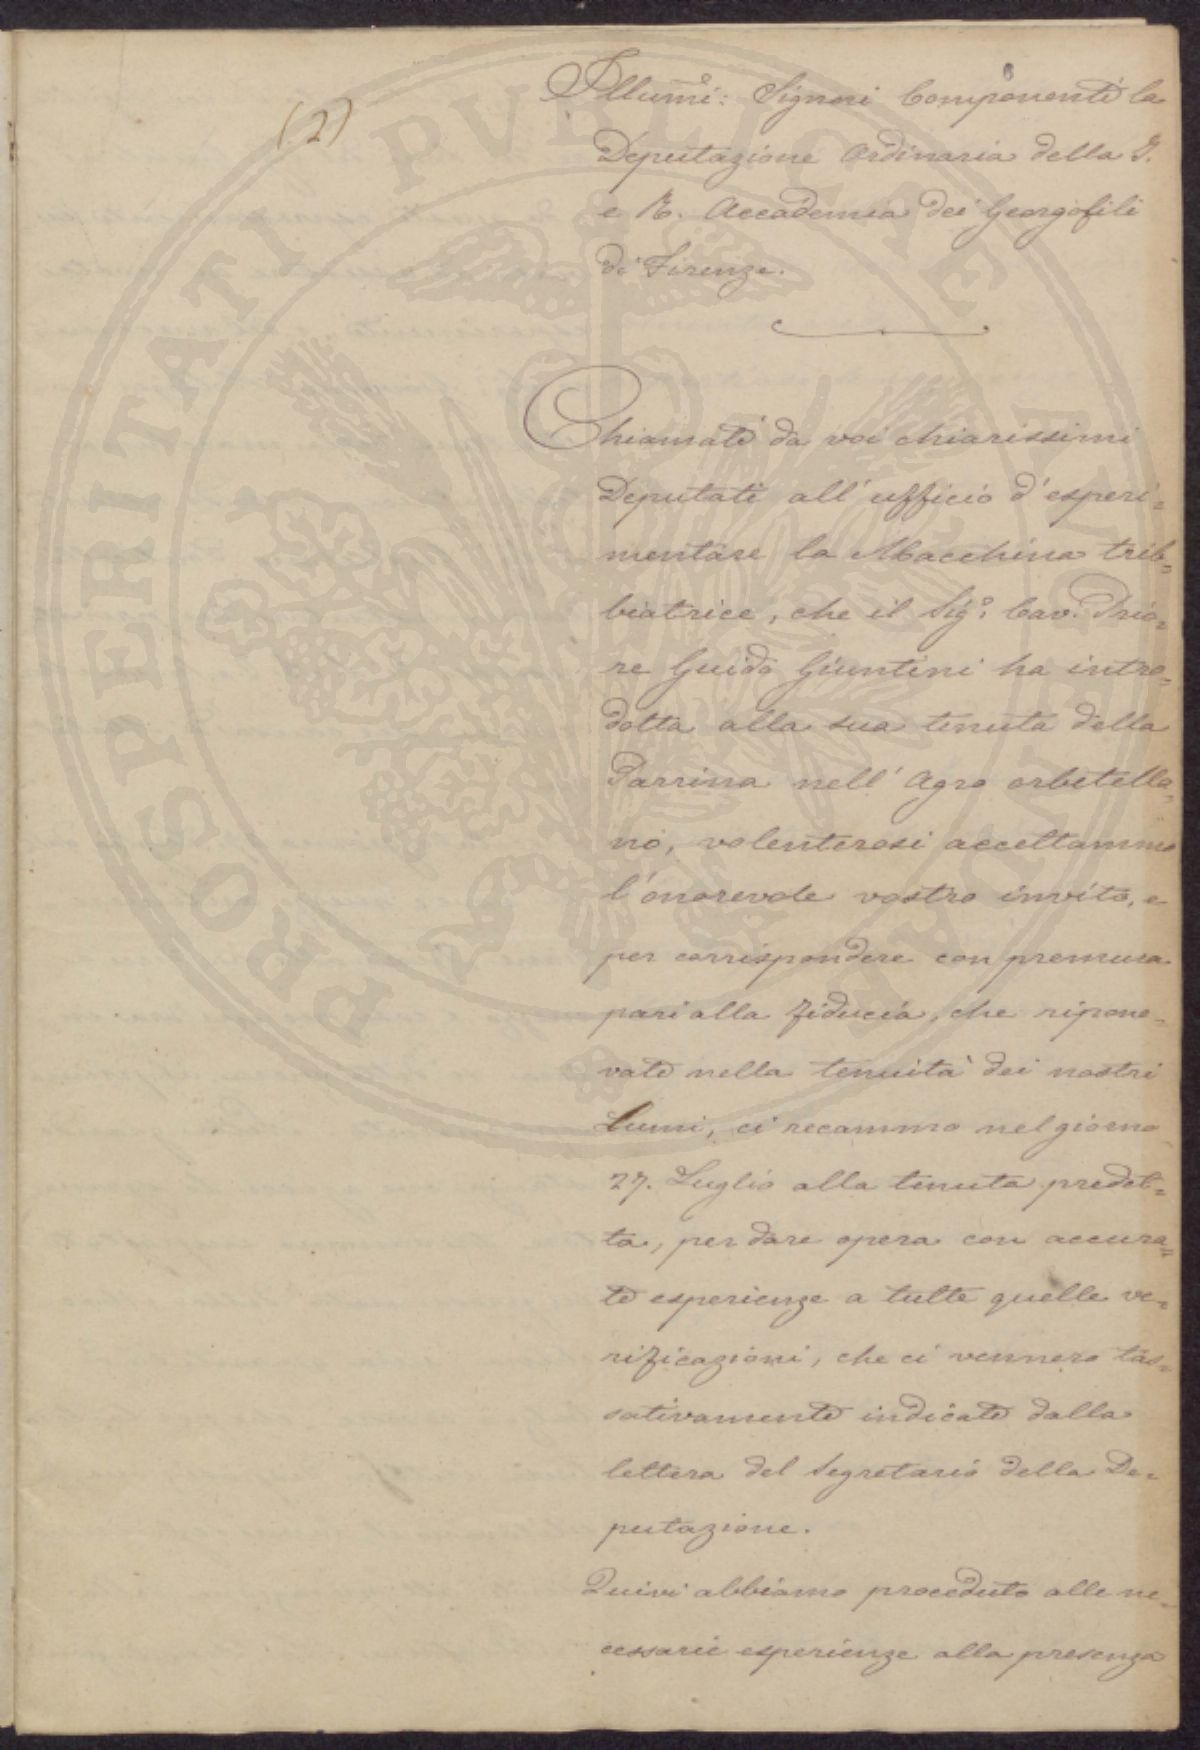 (2)
Illumi: Signori Componenti la
Deputazione Ordinaria della I.
e R. Accademia dei Georgofili
di Firenze.
Chiamati da voi chiarissimi
Deputati all'ufficio d'esperi=
mentare la Macchina treb=
biatrice, che il Sig.r Cav. Prio=
re Guido Giuntini ha intro=
dotta alla sua tenuta della
Parrina nell'Agro orbetella=
no, volenterosi accettammo
l'onorevole vostro invito, e
per corrispondere con premura
pari alla fiducia, che ripone=
vate nella tenuità dei nostri
Lumi, ci recammo nel giorno
27. Luglio alla tenuta predet=
ta, per dare opera con accura=
te esperienze a tutte quelle ve=
rificazioni, che ci vennero tas=
sativamente indicate dalla
lettera del Segretario della De=
putazione.
Quivi abbiamo proceduto alle ne=
cessarie esperienze alla presenza
PROSPERITATI PVBLICAE AVGENDAE